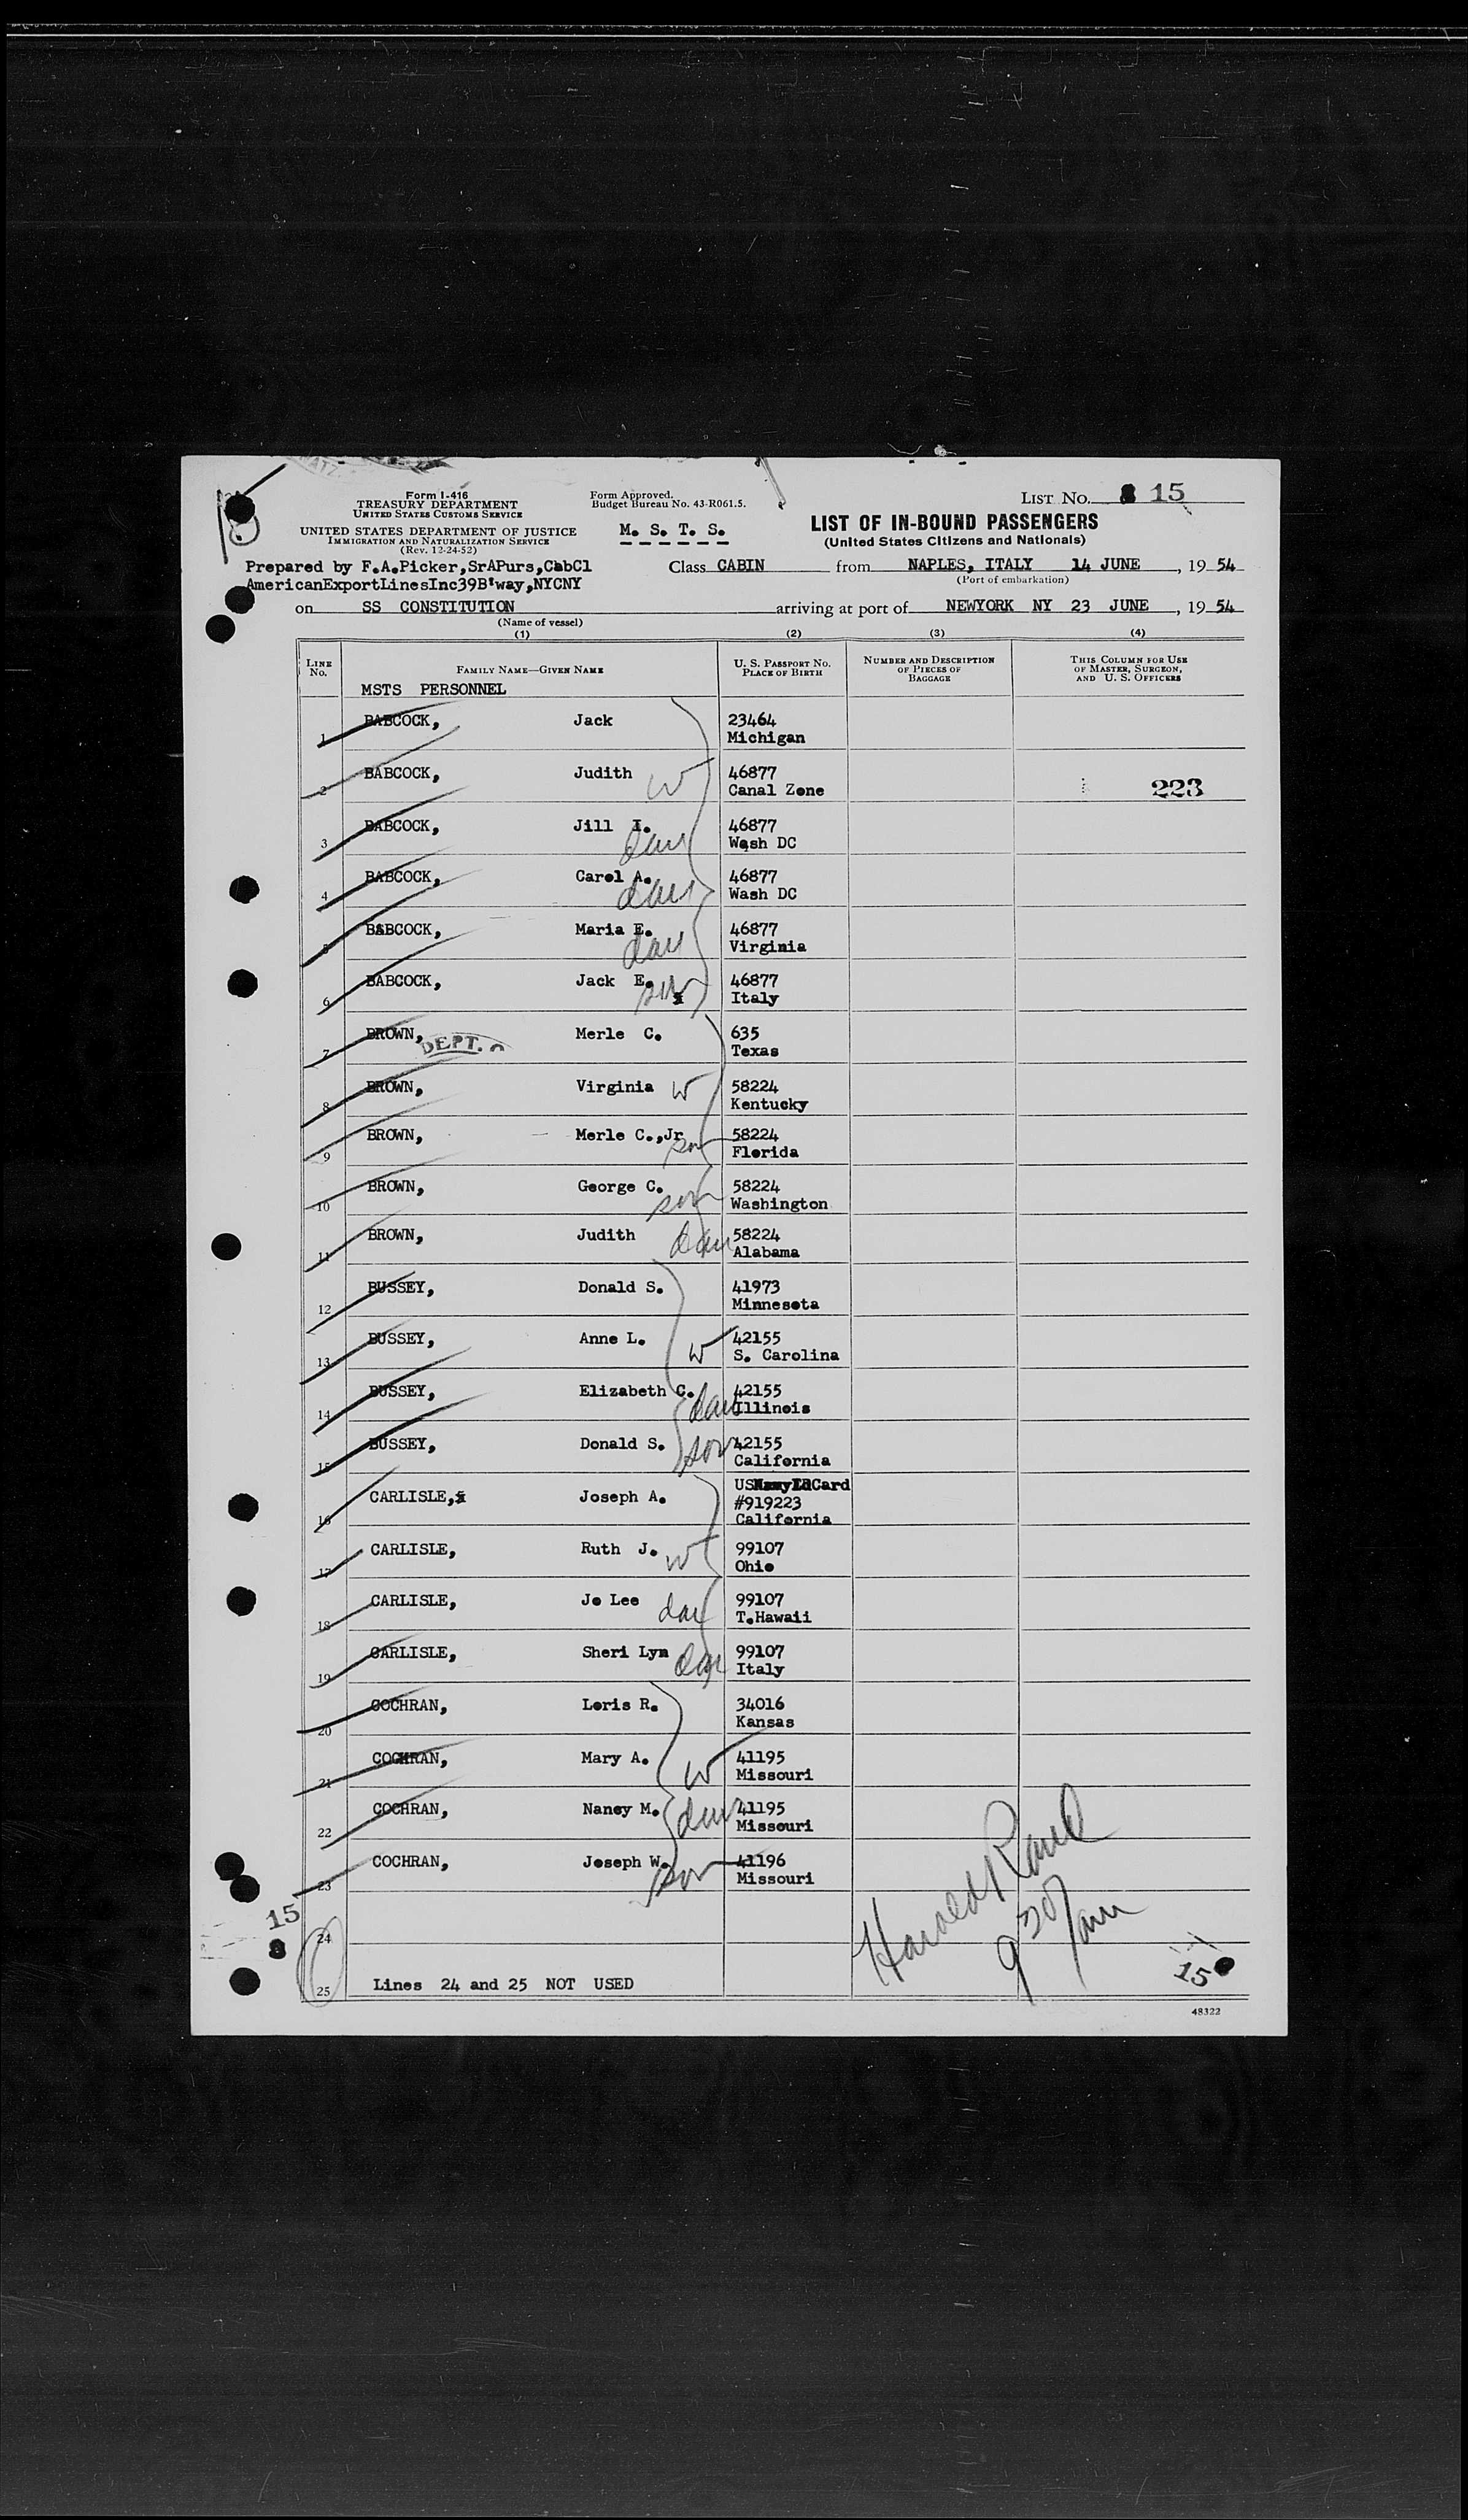 Form I-416
TREASURY DEPARTMENT
UNITED STATES CUSTOMS SERVICE
UNITED STATES DEPARTMENT OF JUSTICE
IMMIGRATION AND NATURALIZATION SERVICE
(Rev. 12-24-52)
Form Approved.
Budget Bureau No. 43-R061.5.
M. S. T. S.
LIST NO. 15
LIST OF IN-BOUND PASSENGERS
(United States Citizens and Nationals)
Prepared by F.A.Picker,SrAPurs,CabCl
AmericanExportLinesInc39B'way,NYCNY
Class CABIN from NAPLES, ITALY 14 JUNE, 19 54
(Port of embarkation)
on SS CONSTITUTION arriving at port of NEWYORK NY 23 JUNE, 19 54
(Name of vessel)
(1) (2) (3) (4)
LINE NO. FAMILY NAME—GIVEN NAME U. S. PASSPORT NO. PLACE OF BIRTH NUMBER AND DESCRIPTION OF PIECES OF BAGGAGE THIS COLUMN FOR USE OF MASTER, SURGEON, AND U. S. OFFICERS
MSTS PERSONNEL
1 BABCOCK, Jack 23464
Michigan
2 BABCOCK, Judith W 46877
Canal Zone 223
3 BABCOCK, Jill I. dau 46877
Wash DC
4 BABCOCK, Carol A. dau 46877
Wash DC
5 BABCOCK, Maria E. dau 46877
Virginia
6 BABCOCK, Jack E. son 46877
Italy
7 BROWN, Merle C. 635
DEPT. Texas
8 BROWN, Virginia W 58224
Kentucky
9 BROWN, Merle C.,Jr son 58224
Florida
10 BROWN, George C. son 58224
Washington
11 BROWN, Judith dau 58224
Alabama
12 BUSSEY, Donald S. 41973
Minnesota
13 BUSSEY, Anne L. W 42155
S. Carolina
14 BUSSEY, Elizabeth C. dau 42155
Illinois
15 BUSSEY, Donald S. son 42155
California
16 CARLISLE, Joseph A. USNavyIDCard
#919223
California
17 CARLISLE, Ruth J. W 99107
Ohio
18 CARLISLE, Jo Lee dau 99107
T.Hawaii
19 CARLISLE, Sheri Lyn dau 99107
Italy
20 COCHRAN, Loris R. 34016
Kansas
21 COCHRAN, Mary A. W 41195
Missouri
22 COCHRAN, Nancy M. dau 41195
Missouri
23 COCHRAN, Joseph W. son 41196
Missouri
15
24
25 Lines 24 and 25 NOT USED
Harold
9 30 am
15
48322